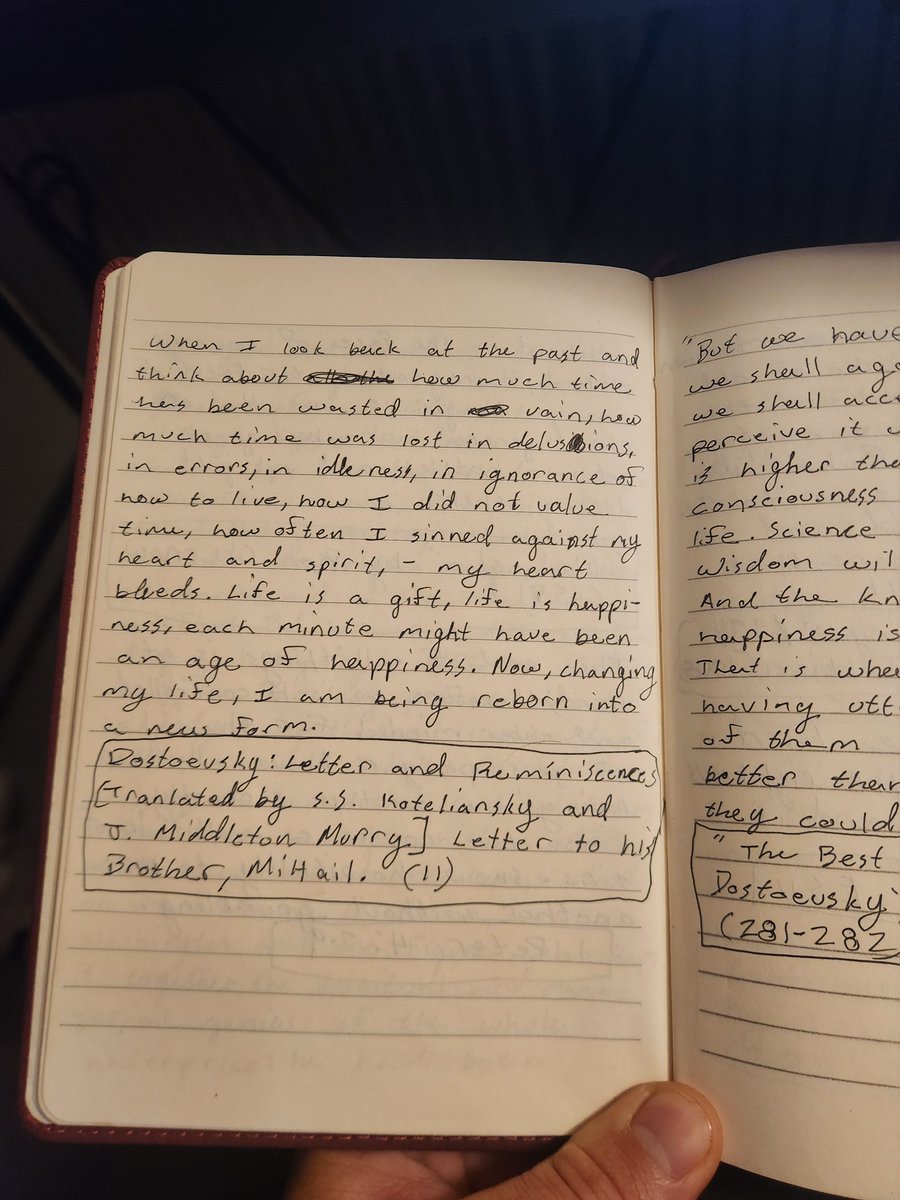 When I look back at the past and
think about how much time
has been wasted in vain, how
much time was lost in delusions,
in errors, in idleness, in ignorance of
how to live, how I did not value
time, how often I sinned against my
heart and spirit, - my heart
bleeds. Life is a gift, life is happi-
ness, each minute might have been
an age of happiness. Now, changing
my life, I am being reborn into
a new form.
Dostoevsky: Letter and Reminiscences
[Tranlated by S.S. Koteliansky and
J. Middleton Murry] Letter to his
Brother, MiHail. (11)
"But we have
we shall ag
we shall acc
perceive it
is higher tha
consciousness
life. Science
wisdom wil
And the kn
happiness is
That is whe
having utt
of them
better than
they could
"The Best
Dostoevsky
(281-282